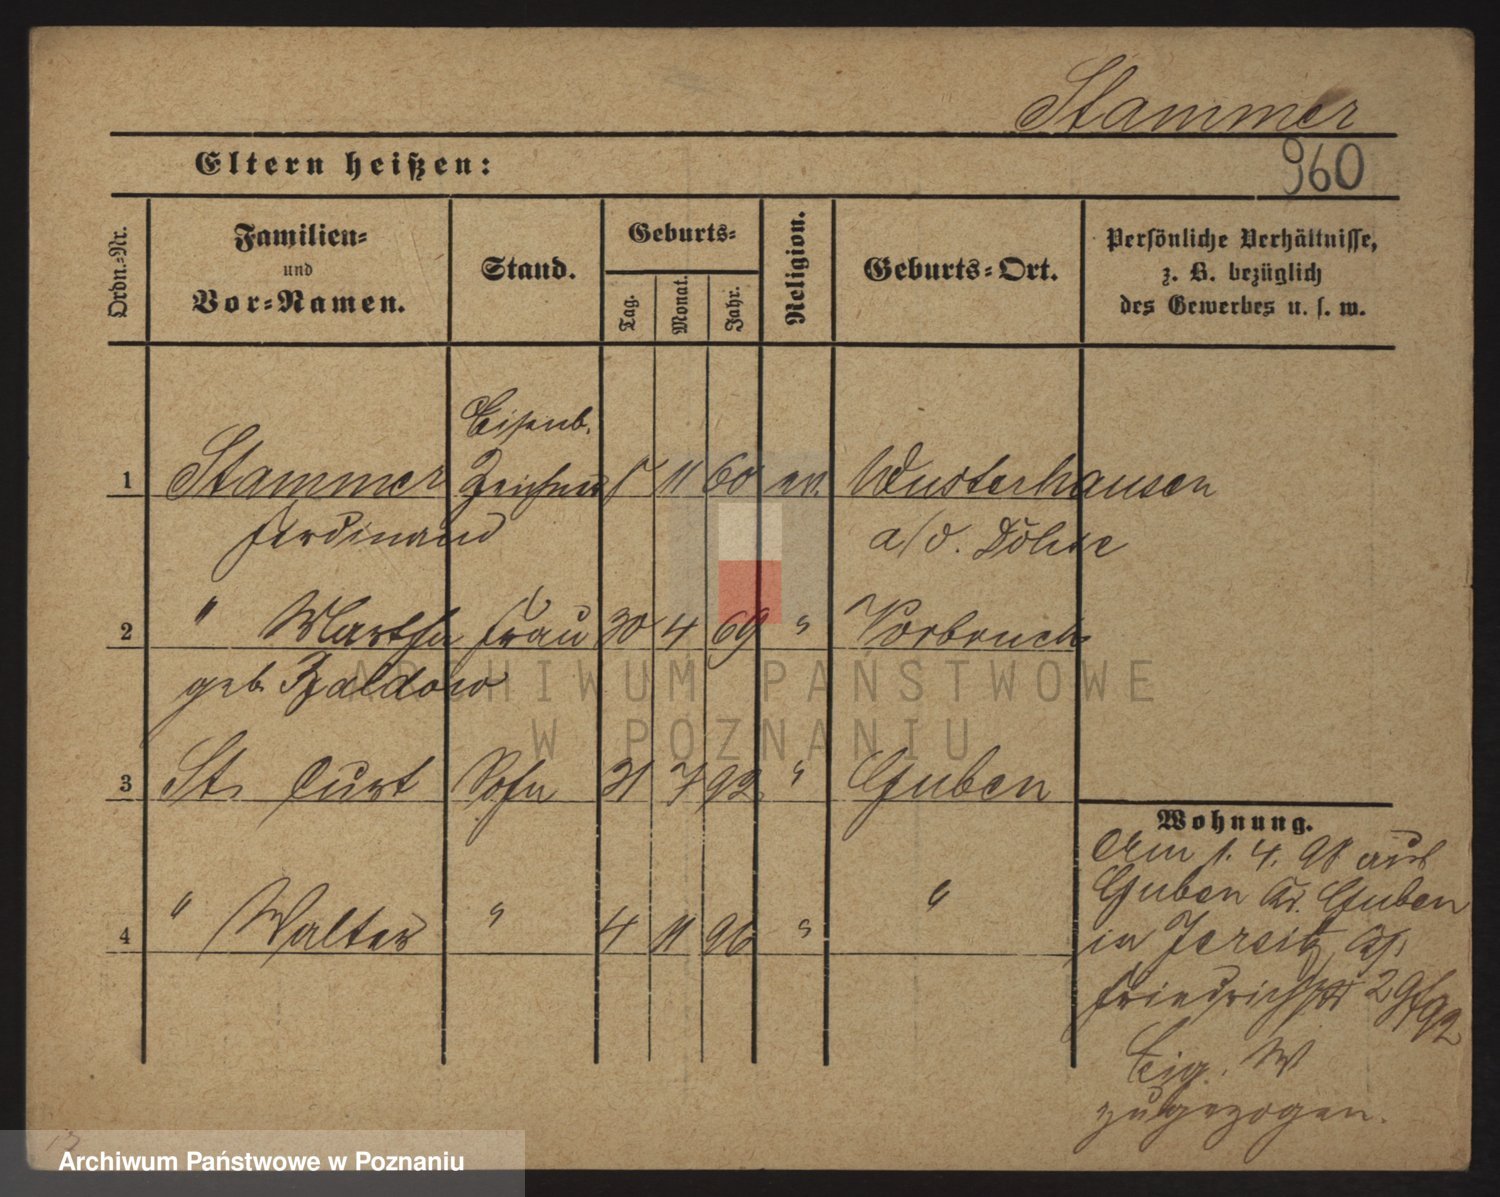 Stammer
960
Eltern heißen:
Ordn.-Nr.
Familien-
und
Vor-Namen.
Stand.
Geburts-
Tag.
Monat.
Jahr.
Religion.
Geburts-Ort.
Persönliche Verhältnisse,
z. B. bezüglich
des Gewerbes u. s. w.
Eisenb.
1 Stammer Zeichner 5 11 60 ev. Wusterhausen
Ferdinand a/d. Dosse
2 " Martha Frau 30 4 69 " Vorbruch
geb. Baldow
3 St. Curt Sohn 31 7 92 " Guben
4 " Walter " 4 11 96 " "
Wohnung.
Am 1. 4. 98 aus
Guben Kr. Guben
in Jersitz
Friedrichstr 29
Eig. W
zugezogen.
ARCHIWUM PAŃSTWOWE
W POZNANIU
Archiwum Państwowe w Poznaniu